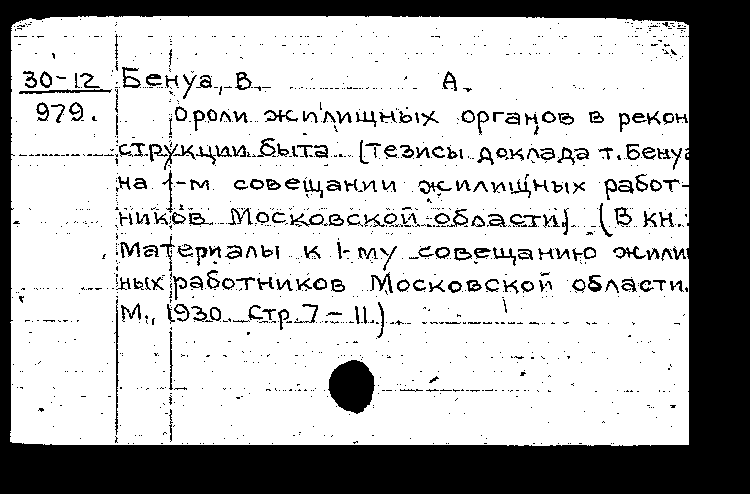 30-12 Бенуа, В. А.
979. О роли жилищных органов в рекон
струкции быта. [Тезисы доклада т. Бенуа
на 1-м совещании жилищных работ-
ников Московской области]. (В кн.:
Материалы к 1-му совещанию жили
ных работников Московской области.
М., 1930. Стр. 7-11.)